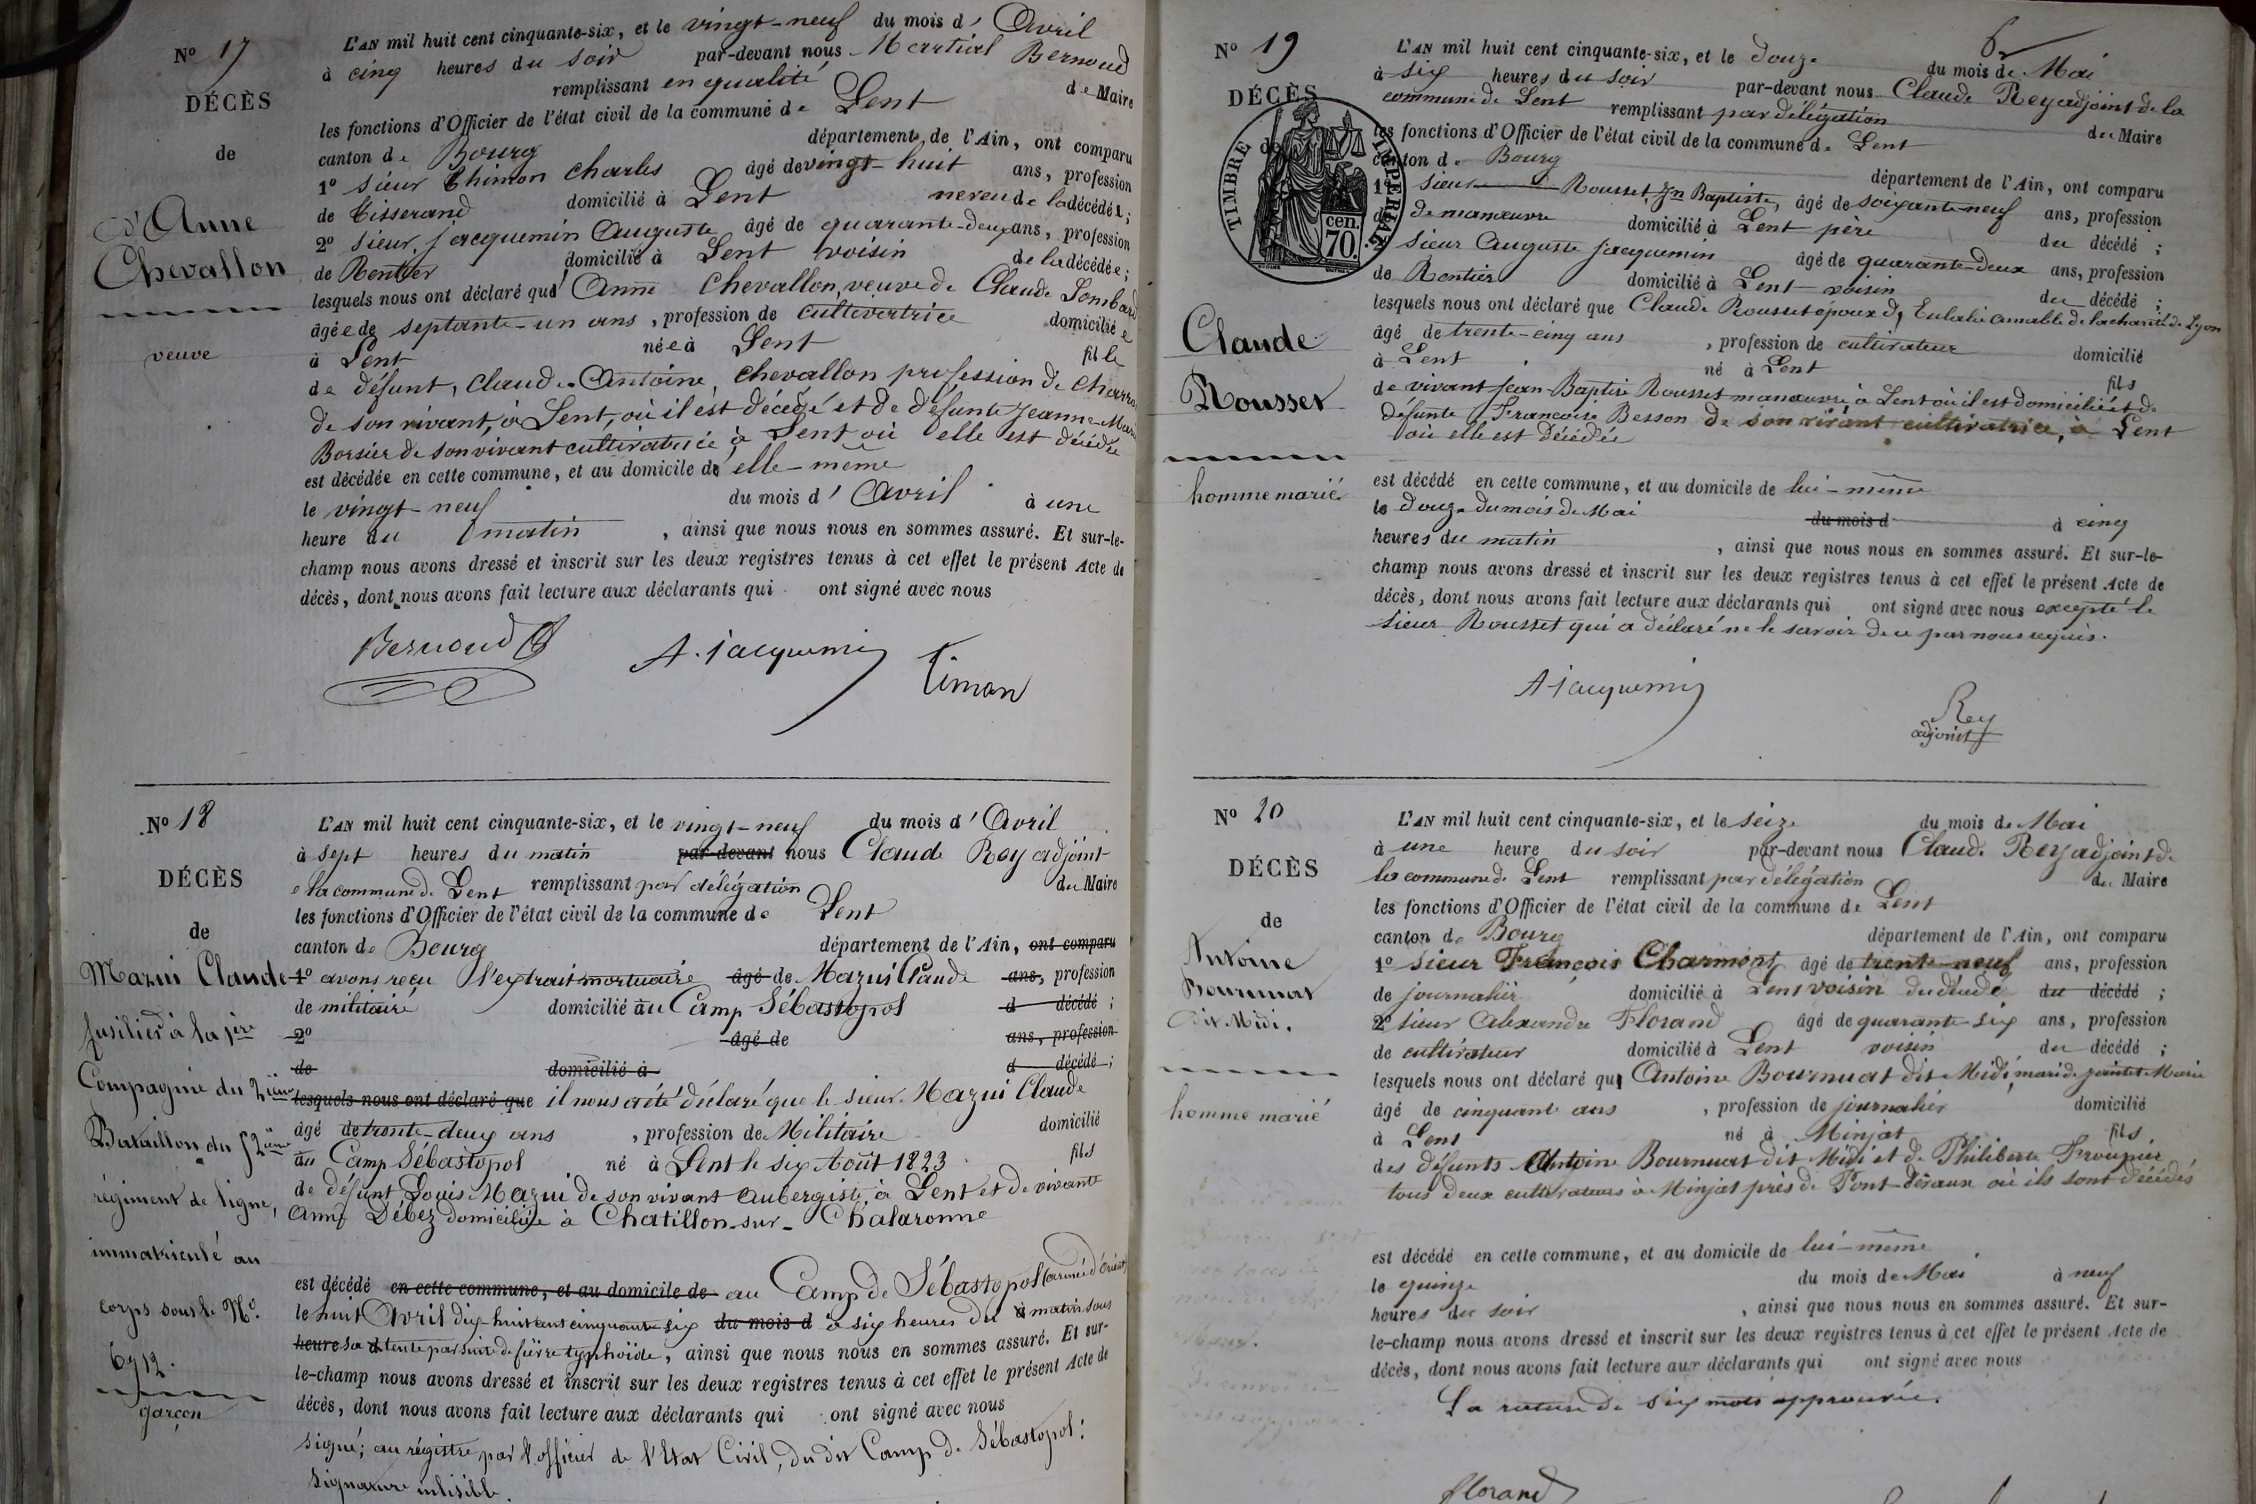 N° 17
DÉCÈS
de
d'Anne
Chevallon
veuve
L'AN mil huit cent cinquante-six, et le vingt-neuf du mois d'Avril
à cinq heures du soir par-devant nous Martial Bernoud
remplissant en qualité de Maire
les fonctions d'Officier de l'état civil de la commune de Lent
canton de Bourg département de l'Ain, ont comparu
1° sieur Thimon Charles âgé de vingt-huit ans, profession
de Tisserand domicilié à Lent neveu de la décédée;
2° sieur Jacquemin Auguste âgé de quarante-deux ans, profession
de Rentier domicilié à Lent voisin de la décédée;
lesquels nous ont déclaré que Anne Chevallon, veuve de Claude Lombard
âgée de septante-un ans, profession de cultivatrice domiciliée
à Lent née à Lent fille
de défunt, Claude-Antoine, Chevallon profession de
de son vivant, à Lent, où il est décédé et de défunte Jeanne-Marie
Borsier de son vivant cultivatrice à Lent où elle est décédée
est décédée en cette commune, et au domicile de elle-même
le vingt-neuf du mois d'Avril à une
heure du matin, ainsi que nous nous en sommes assuré. Et sur-le-
champ nous avons dressé et inscrit sur les deux registres tenus à cet effet le présent Acte de
décès, dont nous avons fait lecture aux déclarants qui ont signé avec nous
Bernoud
A. Jacquemin
Timon
N° 18
DÉCÈS
de
Mazui Claude
fusilier à la 1ère
Compagnie du 2ième
Bataillon du 52ième
régiment de ligne,
immatriculé au
corps sous le N°.
6912.
garçon
L'AN mil huit cent cinquante-six, et le vingt-neuf du mois d'Avril
à sept heures du matin par-devant nous Claude Rey adjoint
de la commune de Lent remplissant par délégation du Maire
les fonctions d'Officier de l'état civil de la commune de Lent
canton de Bourg département de l'Ain, ont comparu
1° avons reçu l'extrait mortuaire âgé de Mazui Claude ans, profession
de militaire domicilié au Camp Sébastopol d décédé;
2° âgé de ans, profession
de domicilié à d décédé;
lesquels nous ont déclaré que il nous a été déclaré que le sieur Mazui Claude
âgé de trente-deux ans, profession de Militaire domicilié
au Camp Sébastopol né à Lent le six Août 1823 fils
de défunt Louis Mazui de son vivant aubergiste à Lent et de vivante
Anne Débez domiciliée à Chatillon-sur-Chalaronne
est décédé en cette commune, et au domicile de au Camp de Sébastopol (armée d'Orient)
le huit Avril dix-huit cent cinquante-six du mois d à six heures du à matin sous
heure sa tente par suite de fièvre typhoïde, ainsi que nous nous en sommes assuré. Et sur-
le-champ nous avons dressé et inscrit sur les deux registres tenus à cet effet le présent Acte de
décès, dont nous avons fait lecture aux déclarants qui ont signé avec nous
signé; au régistre par l'officier de l'Etat Civil, du dit Camp de Sébastopol:
signature illisible.
6
N° 19
DÉCÈS
de
TIMBRE IMPERIAL
70 cen.
Claude
Rousset
homme marié
L'AN mil huit cent cinquante-six, et le douze du mois de Mai
à six heures du soir par-devant nous Claude Rey adjoint de la
commune de Lent remplissant par délégation du Maire
les fonctions d'Officier de l'état civil de la commune de Lent
canton de Bourg département de l'Ain, ont comparu
1° sieur Rousset Jn Baptiste, âgé de soixante neuf ans, profession
de manœuvre domicilié à Lent père du décédé;
sieur Auguste Jacquemin âgé de quarante-deux ans, profession
de Rentier domicilié à Lent voisin du décédé;
lesquels nous ont déclaré que Claude Rousset époux d'Eulalie amable de la charité de Lyon
âgé de trente-cinq ans, profession de cultivateur domicilié
à Lent né à Lent fils
de vivant Jean-Baptiste Rousset manœuvre à Lent où il est domicilié et de
défunte Françoise Besson de son vivant cultivatrice, à Lent
où elle est décédée
est décédé en cette commune, et au domicile de lui-même
le douze du mois de Mai du mois d à cinq
heures du matin, ainsi que nous nous en sommes assuré. Et sur-le-
champ nous avons dressé et inscrit sur les deux registres tenus à cet effet le présent Acte de
décès, dont nous avons fait lecture aux déclarants qui ont signé avec nous excepté le
sieur Rousset qui a déclaré ne le savoir de ce par nous requis.
A Jacquemin
Rey
adjoint
N° 20
DÉCÈS
de
Antoine
Bournuat
dit Midi.
homme marié
L'AN mil huit cent cinquante-six, et le seize du mois de Mai
à une heure du soir par-devant nous Claude Rey adjoint de
la commune de Lent remplissant par délégation du Maire
les fonctions d'Officier de l'état civil de la commune de Lent
canton de Bourg département de l'Ain, ont comparu
1° sieur François Charmont âgé de trente-neuf ans, profession
de journalier domicilié à Lent voisin du décédé du décédé;
2° sieur Alexandre Florand âgé de quarante-six ans, profession
de cultivateur domicilié à Lent voisin du décédé;
lesquels nous ont déclaré que Antoine Bournuat dit Midi, mari de Marie
âgé de cinquante ans, profession de journalier domicilié
à Lent né à Minjat fils
des défunts Antoine Bournuat dit Midi et de Philiberte
tous deux cultivateurs à Minjat près de Pont-de-vaux où ils sont décédés
est décédé en cette commune, et au domicile de lui-même
le quinze du mois de Mai à neuf
heures du soir, ainsi que nous nous en sommes assuré. Et sur-
le-champ nous avons dressé et inscrit sur les deux registres tenus à cet effet le présent Acte de
décès, dont nous avons fait lecture aux déclarants qui ont signé avec nous
La rature de six mots approuvée.
Florand